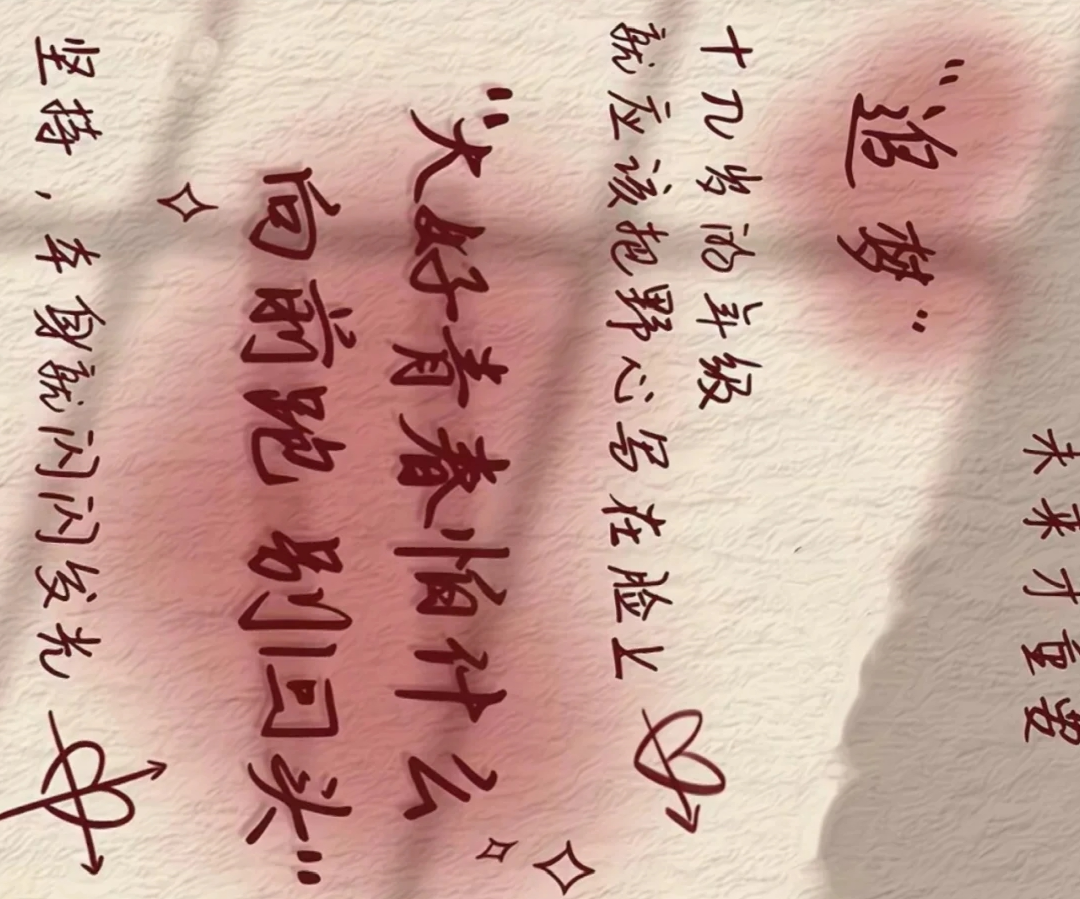 未来才重要
“追梦”
十几岁的年级
就应该把野心写在脸上
“大好青春怕什么
向前跑 别回头”
坚持，本身就闪闪发光